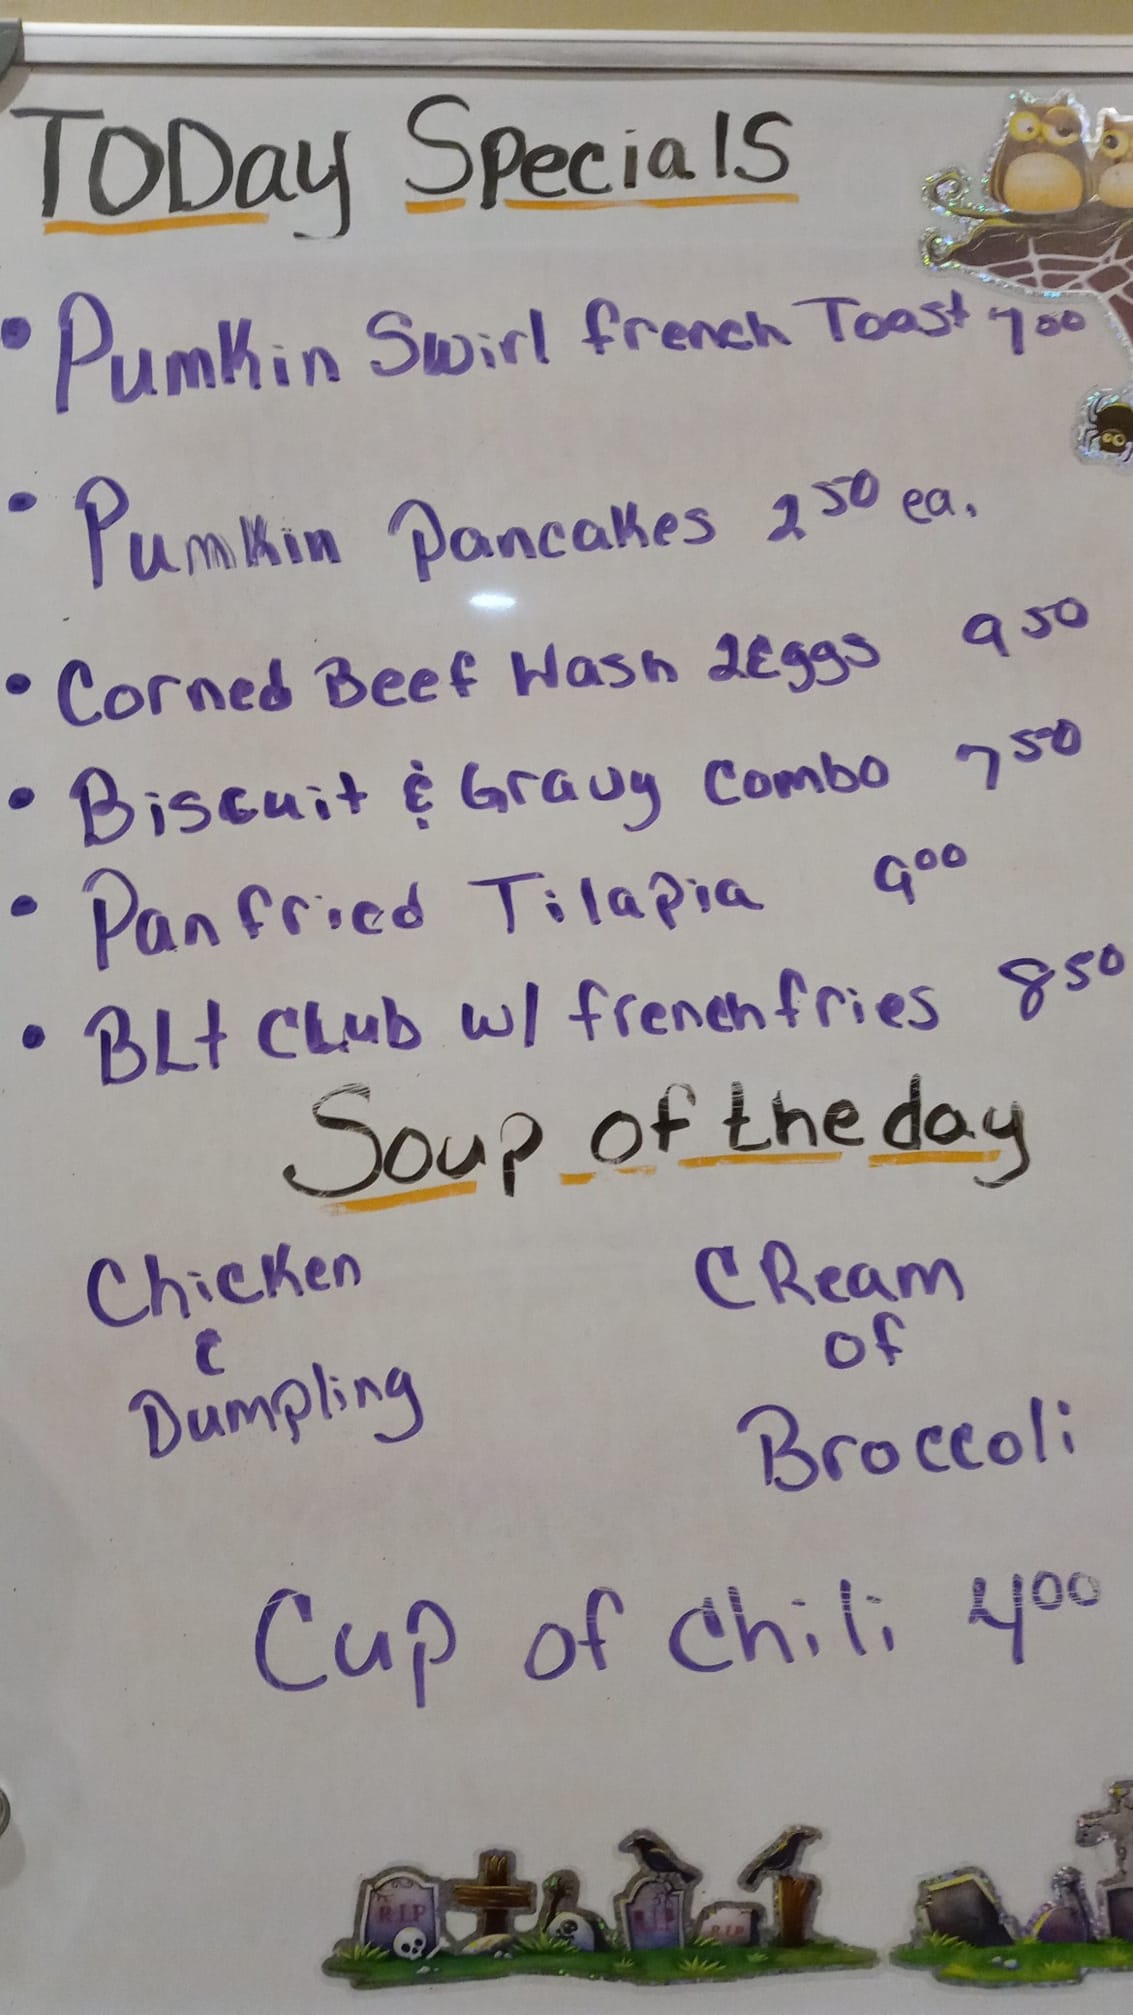 TODay Specials
• Pumkin Swirl french Toast 7 00
• Pumkin Pancakes 2 50 ea.
• Corned Beef Hash 2Eggs 9 50
• Biscuit & Gravy Combo 7 50
• Pan fried Tilapia 9 00
• BLt Club w/ french fries 8 50
Soup of the day
Chicken
&
Dumpling
CReam
of
Broccoli
Cup of Chili 4 00
RIP
RIP
RIP